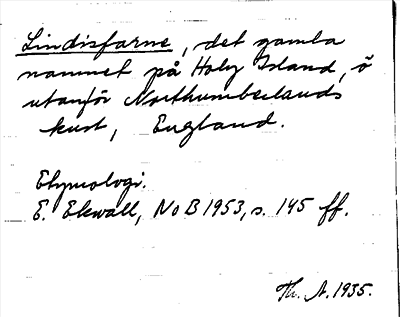 Lindisfarne, det gamla
namnet på Holy Island, ö
utanför Northumberlands
kust, England.
Etymologi.
E. Ekwall, NoB 1953, s. 145 ff.
Th. A. 1935.